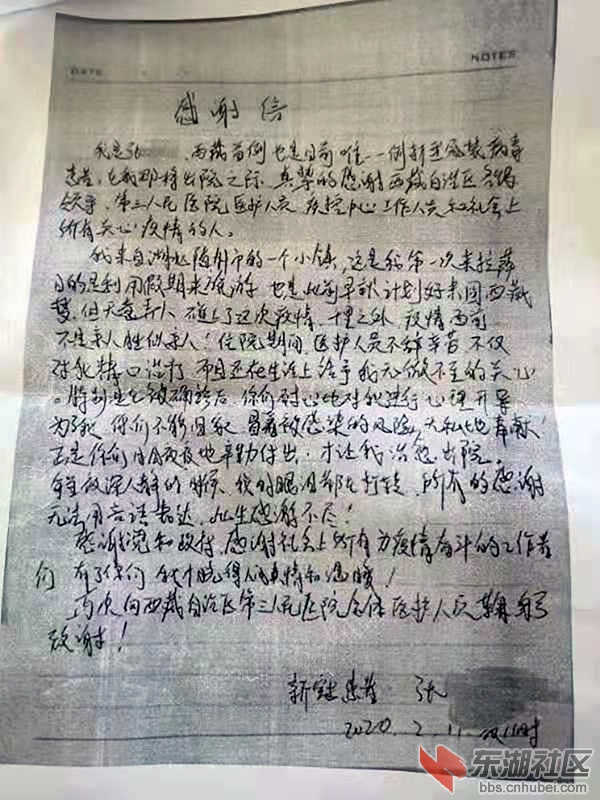 DATE
NOTES
感谢信
我是张 西藏首例也是目前唯一一例新型冠状病毒
患者。在我即将出院之际,真挚的感谢西藏自治区各
第三人民医院医护人员 疾控中心工作人员和社会上
所有关心疫情的人。
我来自湖北随州市的一个小镇,这是我第一次来拉萨
目的是利用假期来旅游 也是此前早就计划好来圆西藏
梦,但天意弄人 碰上了这次疫情,千里之外 疫情面前
不是亲人胜似亲人!住院期间,医护人员不辞辛苦 不仅
对我精心治疗 而且还在生活上给予我无微不至的关心
。特别是在被确诊后,你们耐心地对我进行心理开导
为了我 你们不能回家 冒着被感染的风险,无私地奉献
正是你们日日夜夜地辛勤付出,才让我治愈出院,
每至夜深人静的时候,我的眼泪都在打转,所有的感谢
无法用言语表达,此生感谢不尽!
感谢党和政府,感谢社会上所有为疫情奋斗的工作者
们 有了你们 我才觉得人间真情和温暖!
再次向西藏自治区第三人民医院全体医护人员鞠躬
致谢!
新冠患者 张
2020.2.11
东湖社区
bbs.cnhubei.com